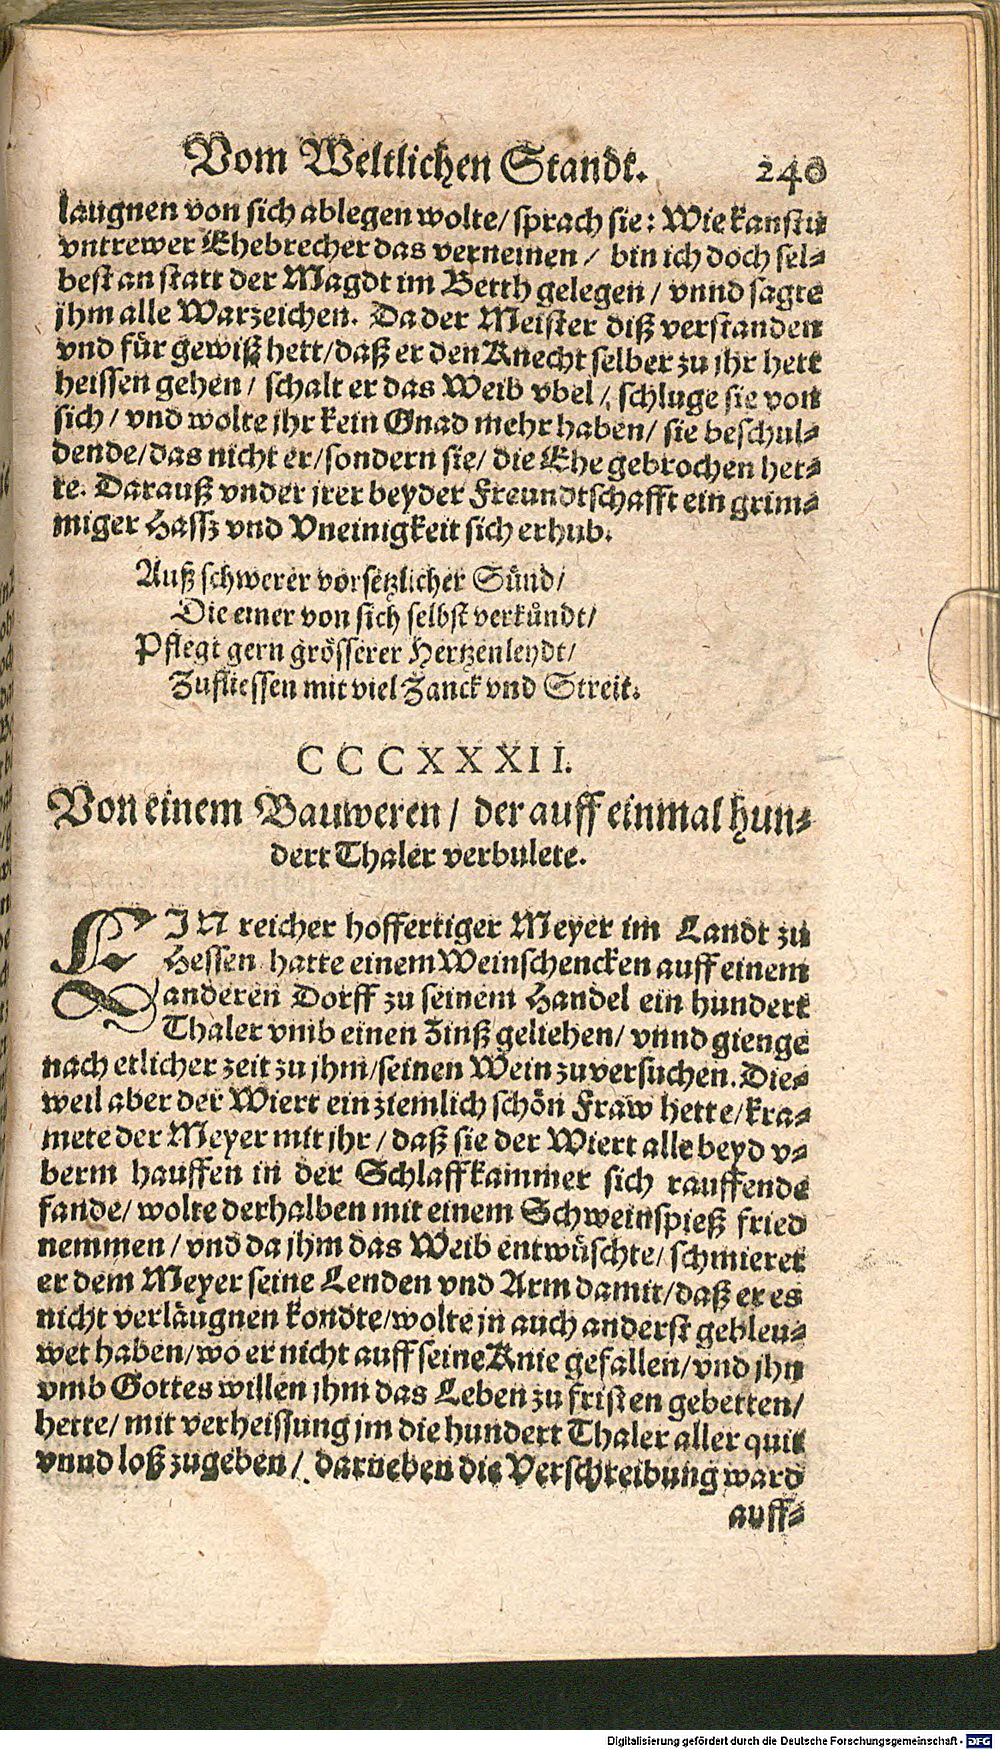 Vom Weltlichen Standt. 240
laugnen von sich ablegen wolte/ sprach sie: Wie kanstu
vntrewer Ehebrecher das verneinen / bin ich doch sel-
best an statt der Magdt im Betth gelegen / vnnd sagte
jhm alle Warzeichen. Da der Meister diß verstanden
vnd für gewiß hett/ daß er den Knecht selber zu jhr hett
heissen gehen / schalt er das Weib vbel /, schluge sie von
sich / vnd wolte jhr kein Gnad mehr haben/ sie beschul-
dende/ das nicht er/ sondern sie/ die Ehe gebrochen het-
te. Darauß vnder jrer beyder Freundtschafft ein grim-
miger Hassz vnd Vneinigkeit sich erhub.
Auß schwerer vorsetzlicher Sünd/
Die einer von sich selbst verkündt/
Pflegt gern grösserer Hertzenleydt/
Zufliessen mit viel Zanck vnd Streit.
CCCXXXII.
Von einem Bauweren / der auff einmal hun-
dert Thaler verbulete.
EIN reicher hoffertiger Meyer im Landt zu
Hessen hatte einem Weinschencken auff einem
anderen Dorff zu seinem Handel ein hundert
Thaler vmb einen Zinß geliehen/ vnnd gienge
nach etlicher zeit zu jhm/ seinen Wein zuversuchen. Die-
weil aber der Wiert ein ziemlich schön Fraw hette/ kra-
mete der Meyer mit jhr / daß sie der Wiert alle beyd v-
berm hauffen in der Schlaffkammer sich rauffende
fande/ wolte derhalben mit einem Schweinspieß fried
nemmen / vnd da jhm das Weib entwüschte/ schmieret
er dem Meyer seine Lenden vnd Arm damit/ daß er es
nicht verläugnen kondte/ wolte jn auch anderst gebleu-
wet haben/ wo er nicht auff seine Knie gefallen/ vnd jhn
vmb Gottes willen jhm das Leben zu fristen gebetten/
hette/ mit verheissung jm die hundert Thaler aller quit
vnnd loß zugeben /. darneben die Verschreibung ward
auff-
Digitalisierung gefördert durch die Deutsche Forschungsgemeinschaft - DFG